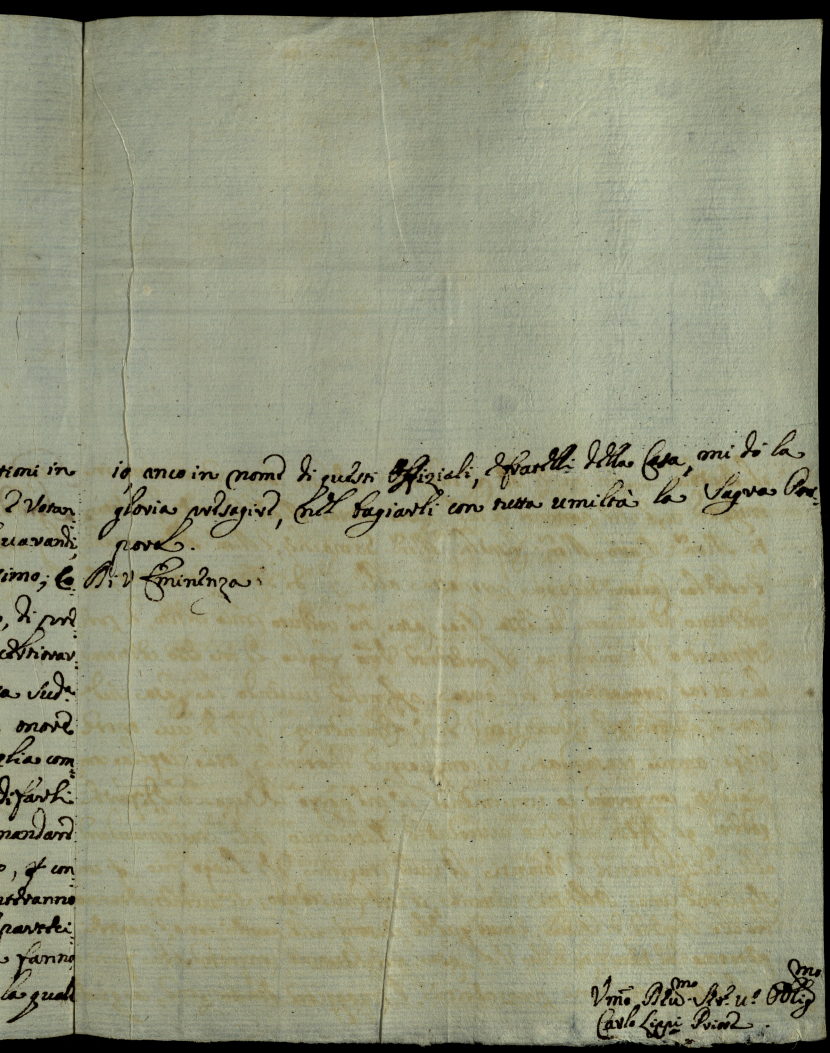 tioni in
e Votan:
quarandi
simo, e Co:
o, di pre
a Sud.a
onore
glia com:
di farli
mandare
o, et con:
nteranno
partici:
e fanno
la quale
io, anco in nome di questi Offiziali, e fratelli della Casa, mi dò la
gloria presagire, nel bagiarli con tutta umiltà la Sagra Por:
pora.
Di V Eminenza
Vmo Devmo Ser.e Obligmo
Carlo Lippi Priore